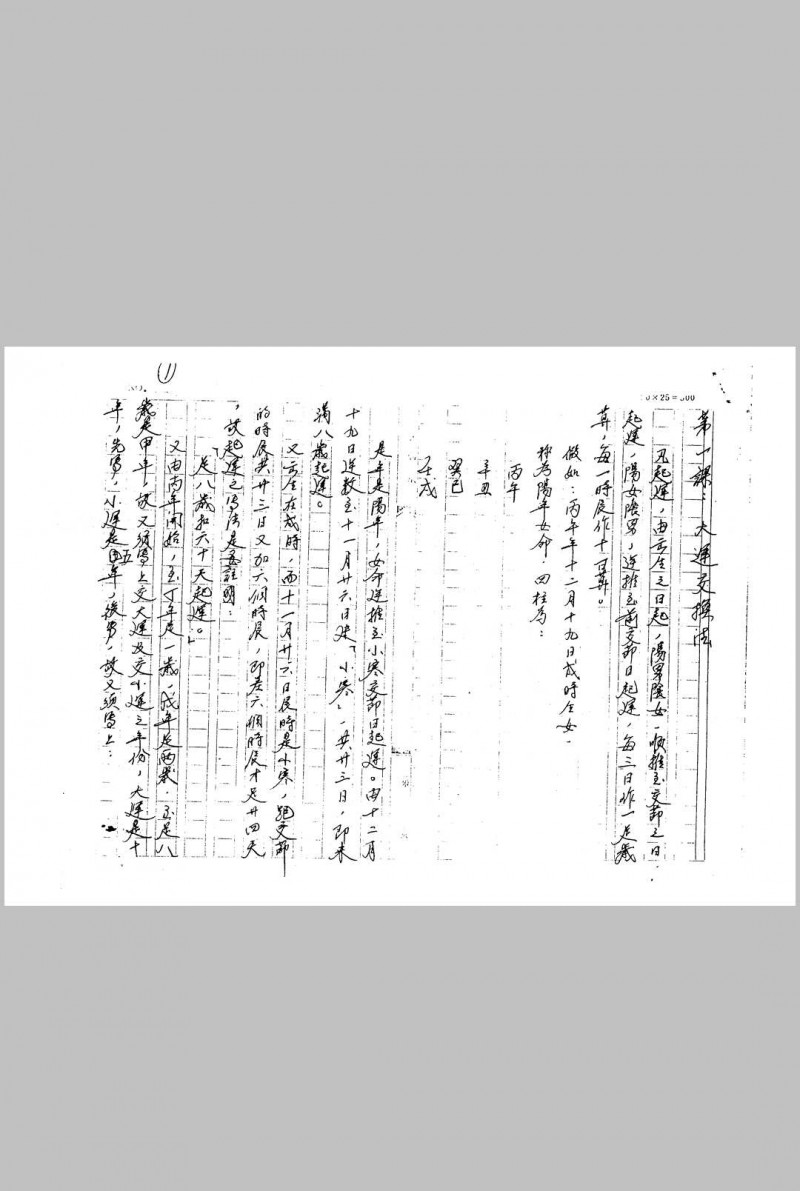 0×25=500
第一課：大運交換法
凡起運，由出生之日起，陽男陰女，順推至交節之日
起運，陽女陰男，逆推至前交節日起運，每三日作一足歲
算，每一時辰作十日算。
假如：丙午年十二月十九日戌時生女，
稱為陽年女命，四柱為：
丙午
辛丑
癸巳
壬戌
是年是陽年，女命逆推至小寒交節日起運。由十二月
十九日逆數至十一月廿六日是「小寒」，共廿三日，即未
滿八歲起運。
又云生在戌時，而十一月廿六日辰時是小寒，
的時辰共廿三日又加六個時辰，即差六個時辰才是廿四天
，故起運之寫法是要註明：
「足八歲扣六十天起運。」
又由丙年開始，至丁年是一歲，戊年是兩歲，至足八
歲是甲年，故又須寫上交大運及交小運之年份，大運是十
年，先寫，小運是五年，後寫，故又須寫上：
①